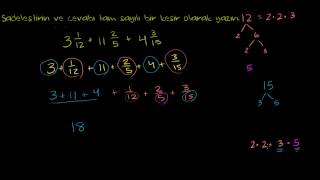 Sadeleştirin ve cevabı tam sayılı bir kesir olarak yazın. 12 = 2·2·3
3 1/12 + 11 2/5 + 4 3/15
2 6
2 3
3 + 1/12 + 11 + 2/5 + 4 + 3/15
5
15
3 5
3 + 11 + 4 + 1/12 + 2/5 + 3/15
18
2·2·3·5